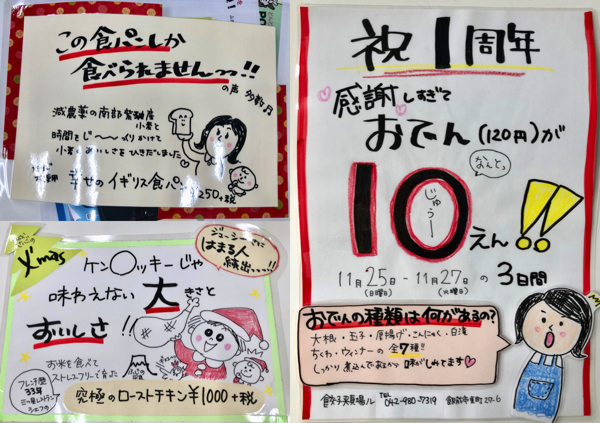 この食パンしか
食べられませんっっ!!
の声 多数
減農薬の南部
小麦と
時間をじ〜〜っくりかけて
小麦のおいしさをひきだしました
幸せのイギリス食パン
250+税
X'mas
ケン〇ッキーじゃ
味わえない大きさと
おいしさ!!
ジューシーさに
はまる人
続出っっっ!!
お米を食べて
ストレスフリーで育った
フレンチ歴
33年
三つ星レストラン
シェフの
究極のローストチキン¥1000+税
祝1周年
感謝しすぎて
おでん(120円)が
なんとっ
10えん!!
じゅうー
11月25日-11月27日の3日間
(日曜日)
(火曜日)
おでんの種類は何があるの?
大根・玉子・厚揚げ・こんにゃく・白滝
ちくわ・ウィンナーの全7種!!
しっかり煮込んであるから味がしみてます
餃子実見場ル TEL 042-980-7319